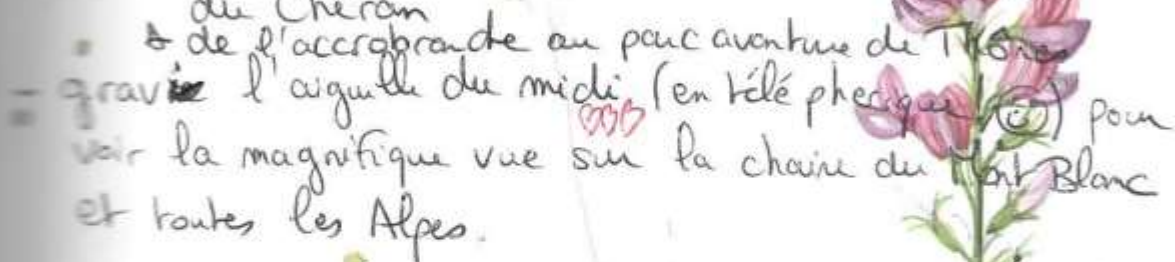 du Chéran
& de l'accrobranche au parc aventure de Thônes
- gravir l'aiguille du midi (en téléphérique ☺) pour
voir la magnifique vue sur la chaine du Mont Blanc
et toutes les Alpes.